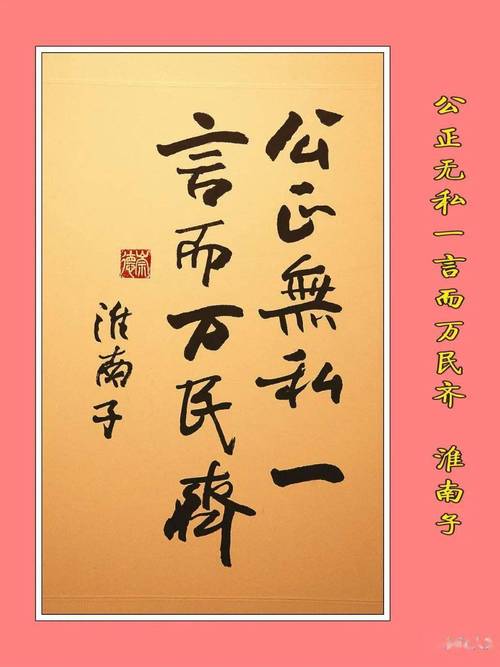 公正無私一
言而万民齊
淮南子
崇德
公正无私一言而万民齐 淮南子